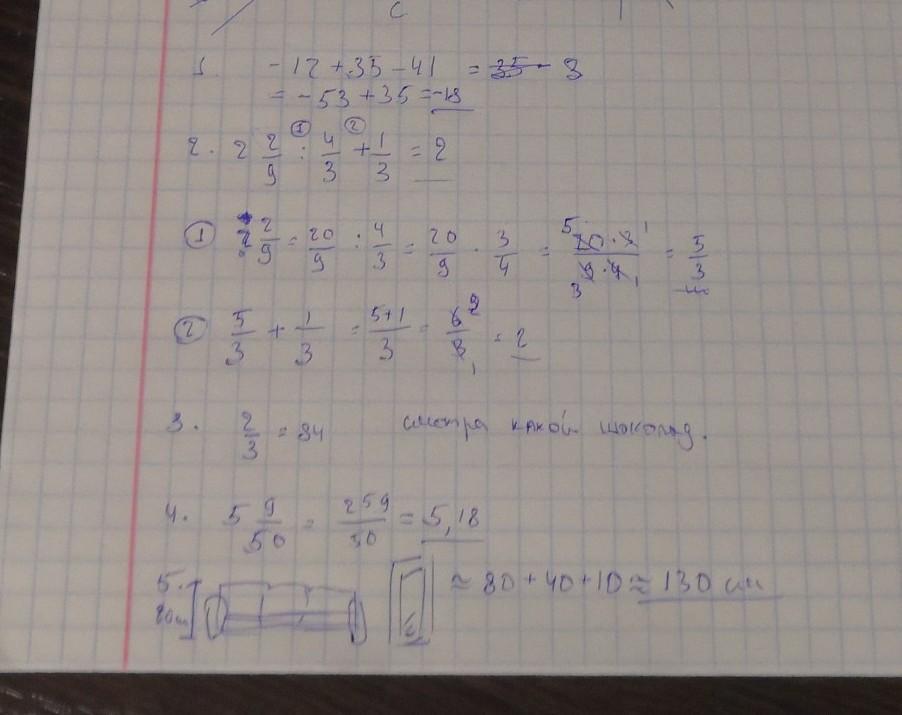 1. -12 + 35 - 41 = 35 - 3
= -53 + 35 = -18
① ②
2. 2 2/9 : 4/3 + 1/3 = 2
① 2 2/9 = 20/9 : 4/3 = 20/9 · 3/4 = 20·3/9·4 = 5/3
② 5/3 + 1/3 = 5+1/3 = 6/3 = 2
3. 2/3 = 34 смотра какой шоколад.
4. 5 9/50 = 259/50 = 5,18
5. ≈ 80 + 40 + 10 ≈ 130 см
80см